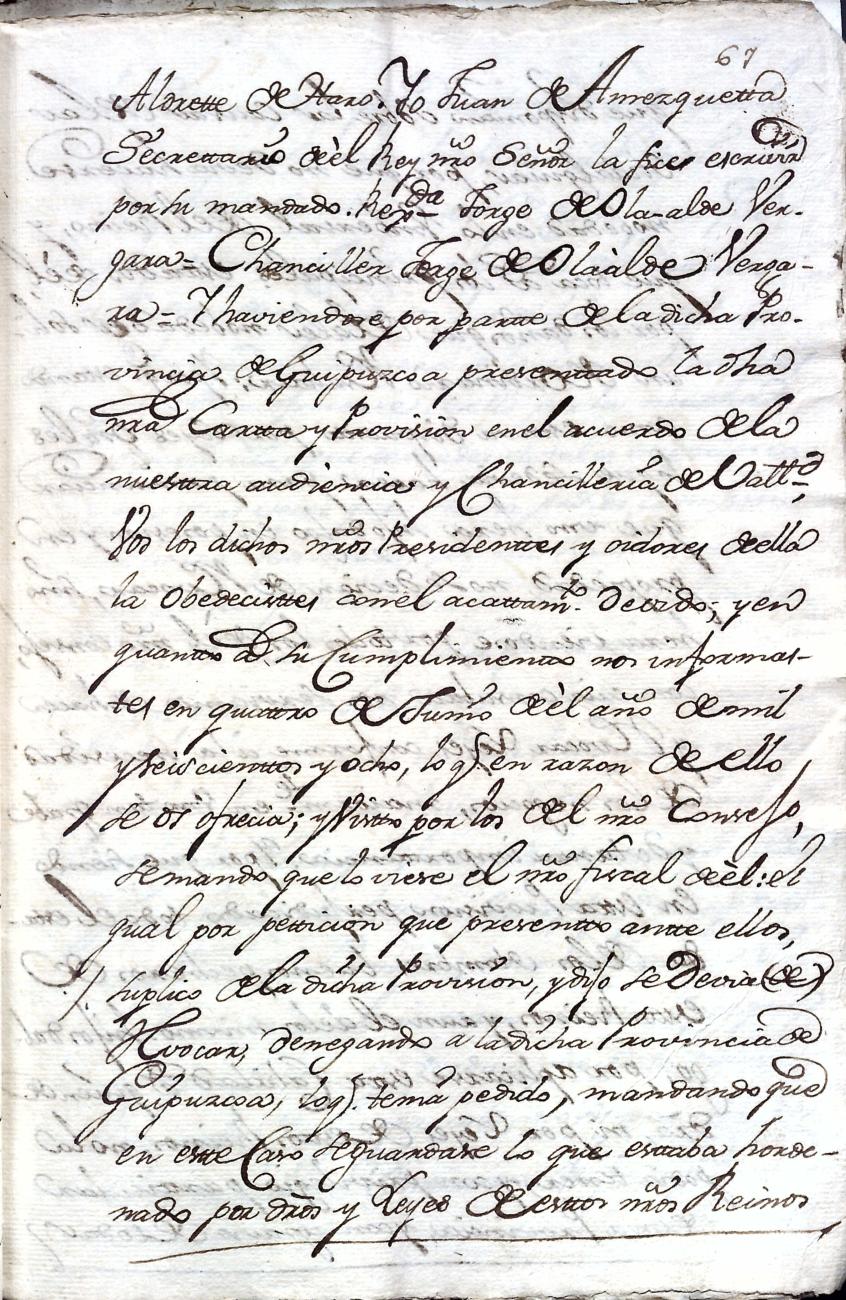 67
Aldrette de Haro. Yo Juan de Amezquetta
Secrettario de èl Rey nr̃o Señor la fice escrivir
por su mandado. Rexda Jorge de Olaalde Ver-
gara = Chanciller Jorge de Olaàlde Verga-
ra = Y haviendose por partte de la dicha Pro-
vincia de Guipuzcoa presenttado la dha
nrã Cartta y Provision en el acuerdo de la
nuesttra audiencia y Chancilleria de Valld,
Vos los dichos nrõs Presidenttes y oidores de ella
la Obedecisttes con el acattamto. Devido; y en
quantto a su Cumplimientto nos informas-
tes en quattro de Junio de èl año de mil
y seiscienttos y ocho, lo q. en razon de ello
se os ofrecia; y Vistto por los del nrõ Consejo,
se mando que lo viese el nrõ fiscal de èl: el
qual por petticion que presentto antte ellos,
suplico de la dicha Provision, y dijo se Devia (de)
Rvocar, denegando a la dicha Provincia de
Guipuzcoa, lo q. tenia pedido, mandando que
en estte Caso se guardase lo que esttaba horde-
nado por drõs y Leyes de esttos nrõs Reinos